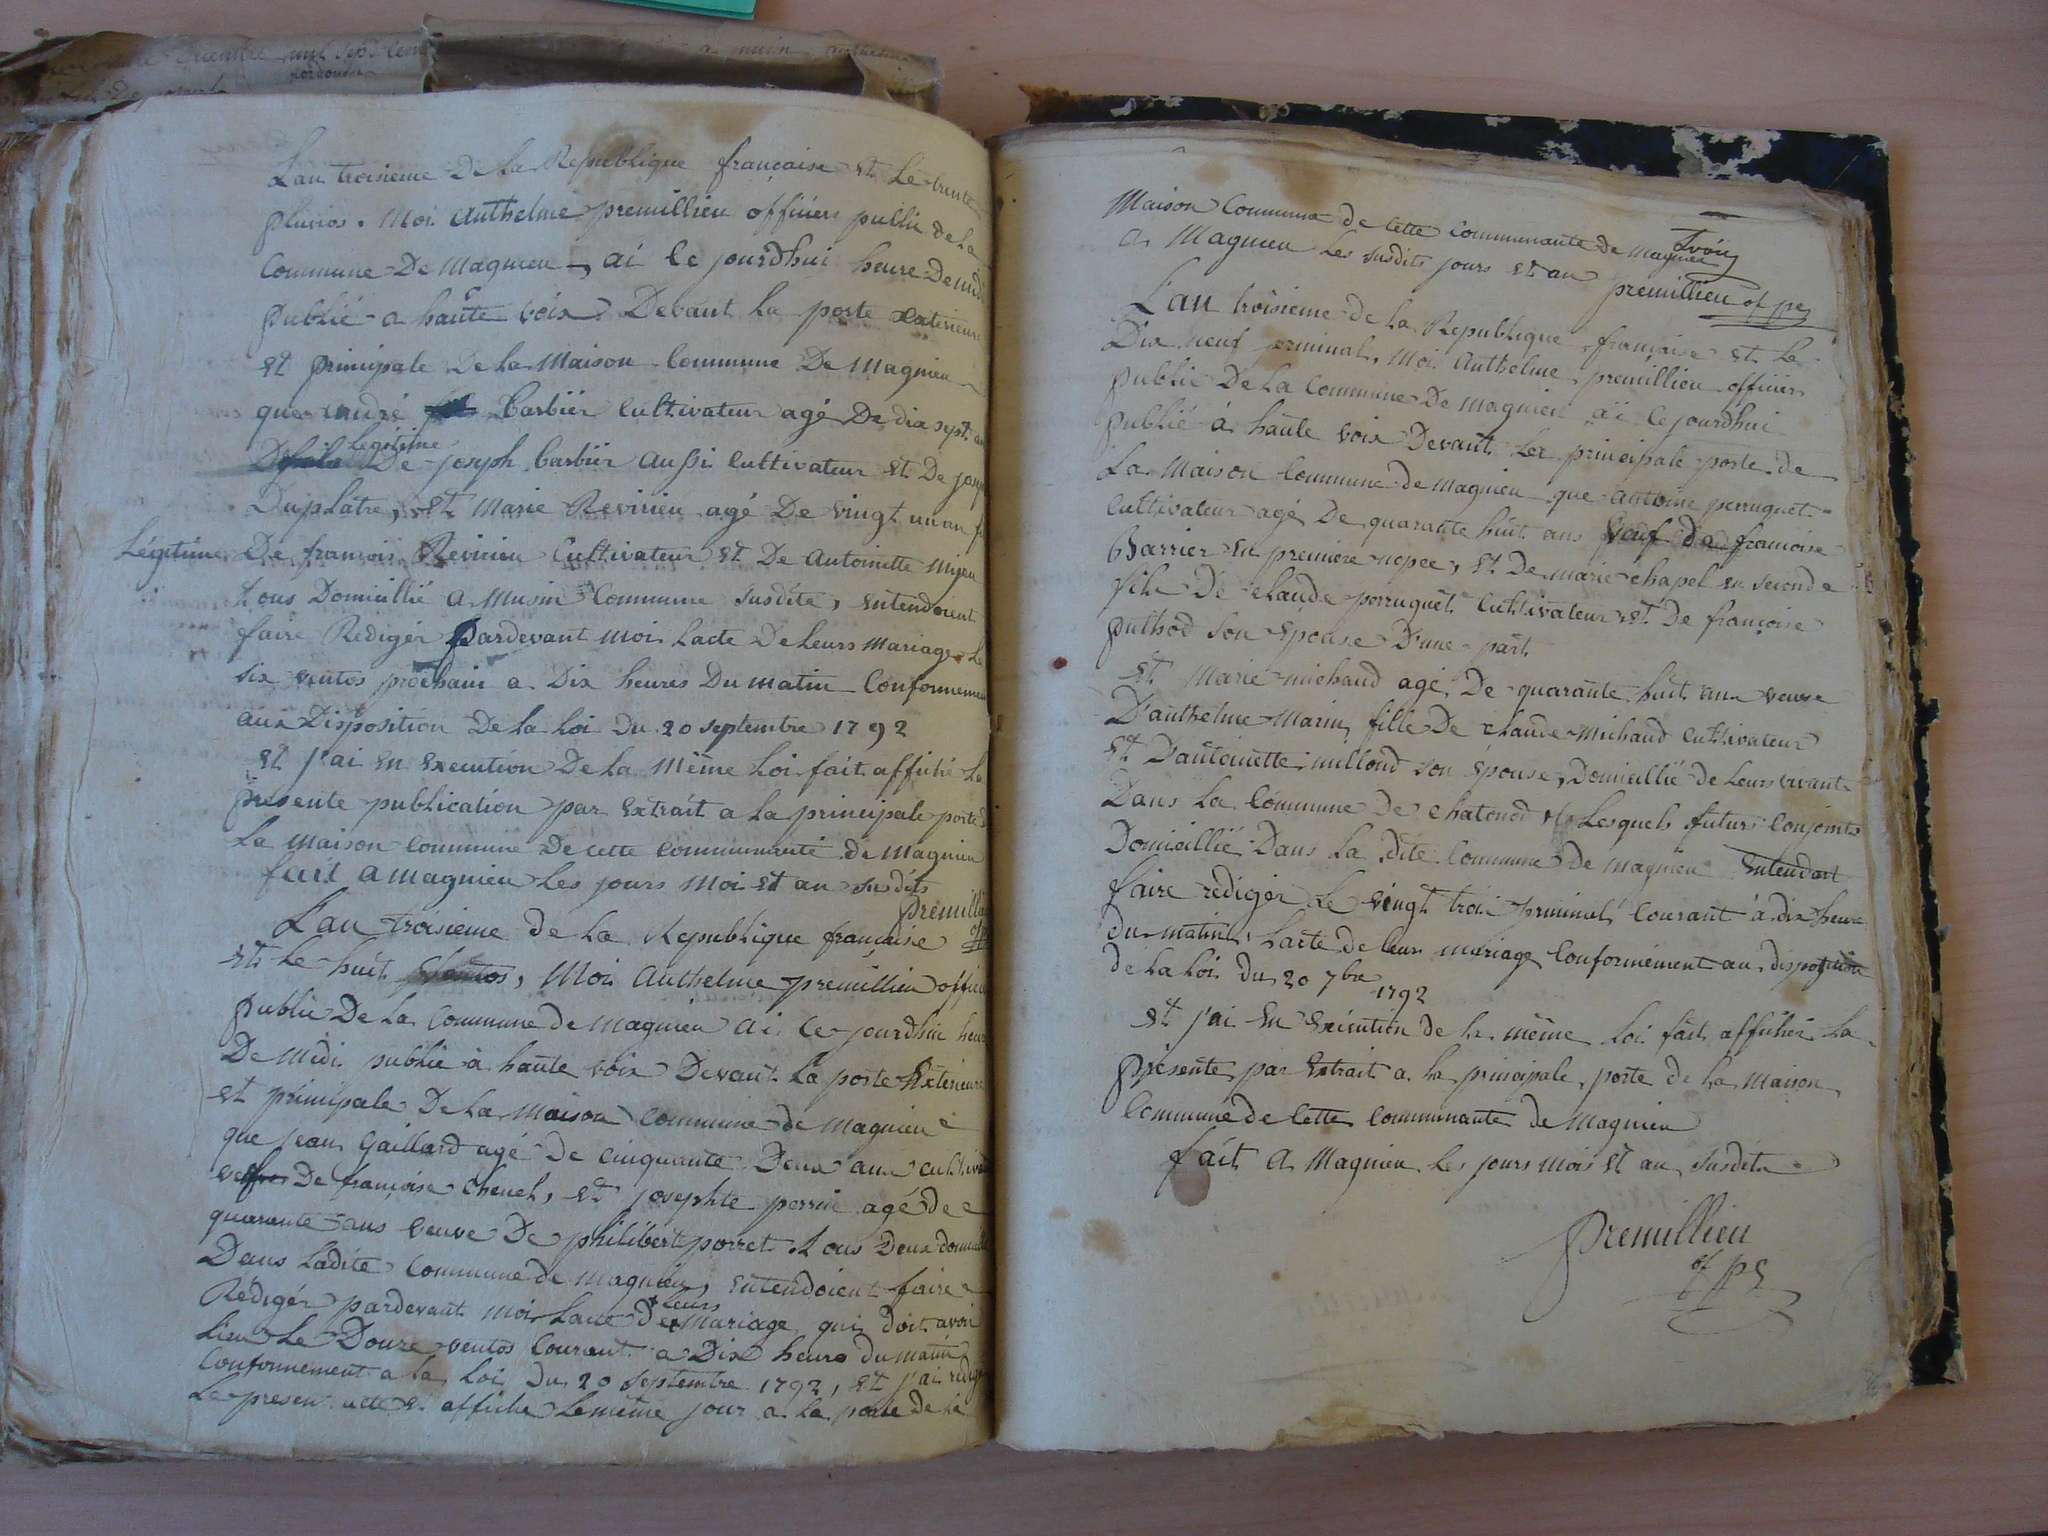 L'an troisieme De La Republique françaisse et Le trente
pluvios. Moi Anthelme premillieu officiers public de la
Commune De Magnieu, ai ce jourdhui heure De midi
publié a haute voix Devant La porte exterieure
et principale De La Maison Commune De Magnieu
que andré Barbiér Cultivateur agé De dix sept an
Legitime
De joseph barbiér aussi Cultivateur et De
Duplatre, et Marie Revirieu agé De vingt un an
Légitime De francois Revirieu Cultivateur et De Antoinette
tous Domicillié a Musin Commune susdite, entendoient
faire Redigér pardevant moi Lacte De Leurs Mariage Le
six ventos prochain a Dix heures Du matin Conformement
aux Disposition De La Loi Du 20 septembre 1792
et j'ai en execution De la Même Loi fait affiché La
présente publication par extrait a la principale porte
La maison Commune De cette Communauté de Magnieu
fait a Magnieu Les jours Mois et an susdits
premillieu
L'an troisieme de La Republique française
et Le huit ventos, Moi Anthelme premillieu officier
public De La Commune de Magnieu ai Ce jourdhui heure
De Midi publié à haute voix Devant La porte exterieure
et principale De La Maison Commune de Magnieu
que jean Gaillard agé De cinquante Deux ans
De françoise Chenel, et josephte perrin agé de
quarante ans veuve De philibert porret tous Deux
Dans Ladite Commune de Magnieu, entendoient faire
Rédigér pardevant moi Lacte De leurs Mariage qui doit avoir
Lieu Le Douze ventos Courant a Dix heure du matin
Conformement a la Loi Du 20 septembre 1792, et j'ai redigé
Le present acte et affiché Le même jour a la porte De la
Maison Commune de Cette Communauté de Magnieu
a Magnieu Les susdits jours et an premillieu of pe
L'an troisieme de La Republique française et Le
Dix neuf germinal, Moi Anthelme premillieu officier
public De La Commune De Magnieu ai Cejourdhui
publié à haute voix Devant La principale porte de
La Maison Commune de Magnieu que Antoine perruquet
Cultivateur agé De quarante huit ans veuf de françoise
Barrier en premiere nopce, et De marie chapel en seconde
fils De Claude perruquet Cultivateur et De françoise
puthod son epouse D'une part
et Marie michaud agé De quarante huit ans veuve
D'anthelme Marin, fille De Claude Michaud Cultivateur
et D'antoinette milloud son épouse, Domicillié de Leurs vivant
Dans La Commune De Chatonod Lesquels futurs Conjoints
Domicillié Dans La dite Commune De Magnieu entendent
faire redigér Le vingt trois germinal Courant à dix heure
du matin, Lacte de leur mariage Conformément au disposition
de La Loi Du 20 7bre 1792
et j'ai en execution de la même Loi fait afficher La
présente par extrait a la principale porte de La Maison
Commune de Cette Communauté de Magnieu
fait a Magnieu Les jours mois et an susdits
premillieu
of pe